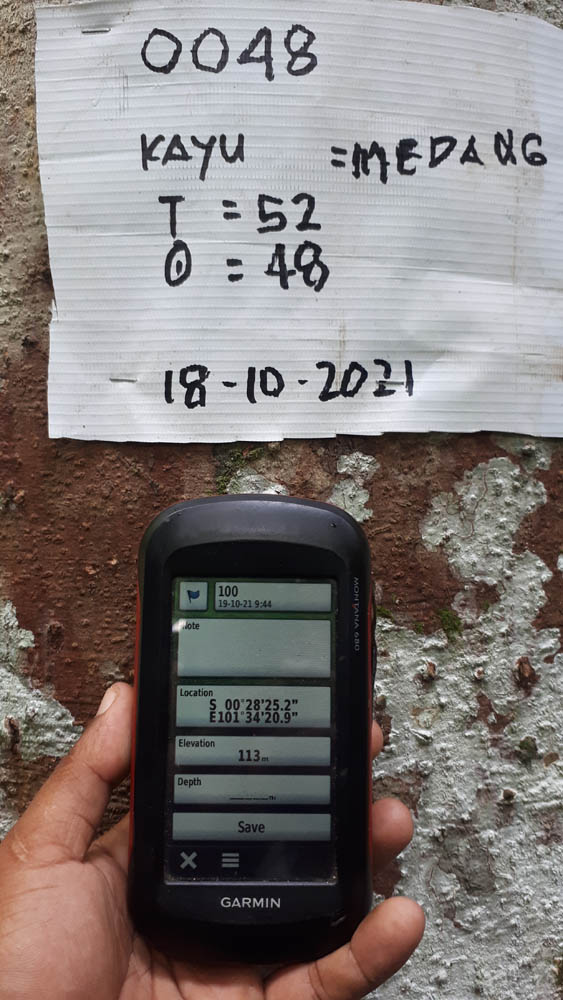 0048
KAYU = MEDANG
T = 52
0 = 48
18-10-2021
MONTANA 680
100
19-10-21 9:44
Note
Location
S 00°28'25.2"
E101°34'20.9"
Elevation
113 m
Depth
Save
GARMIN